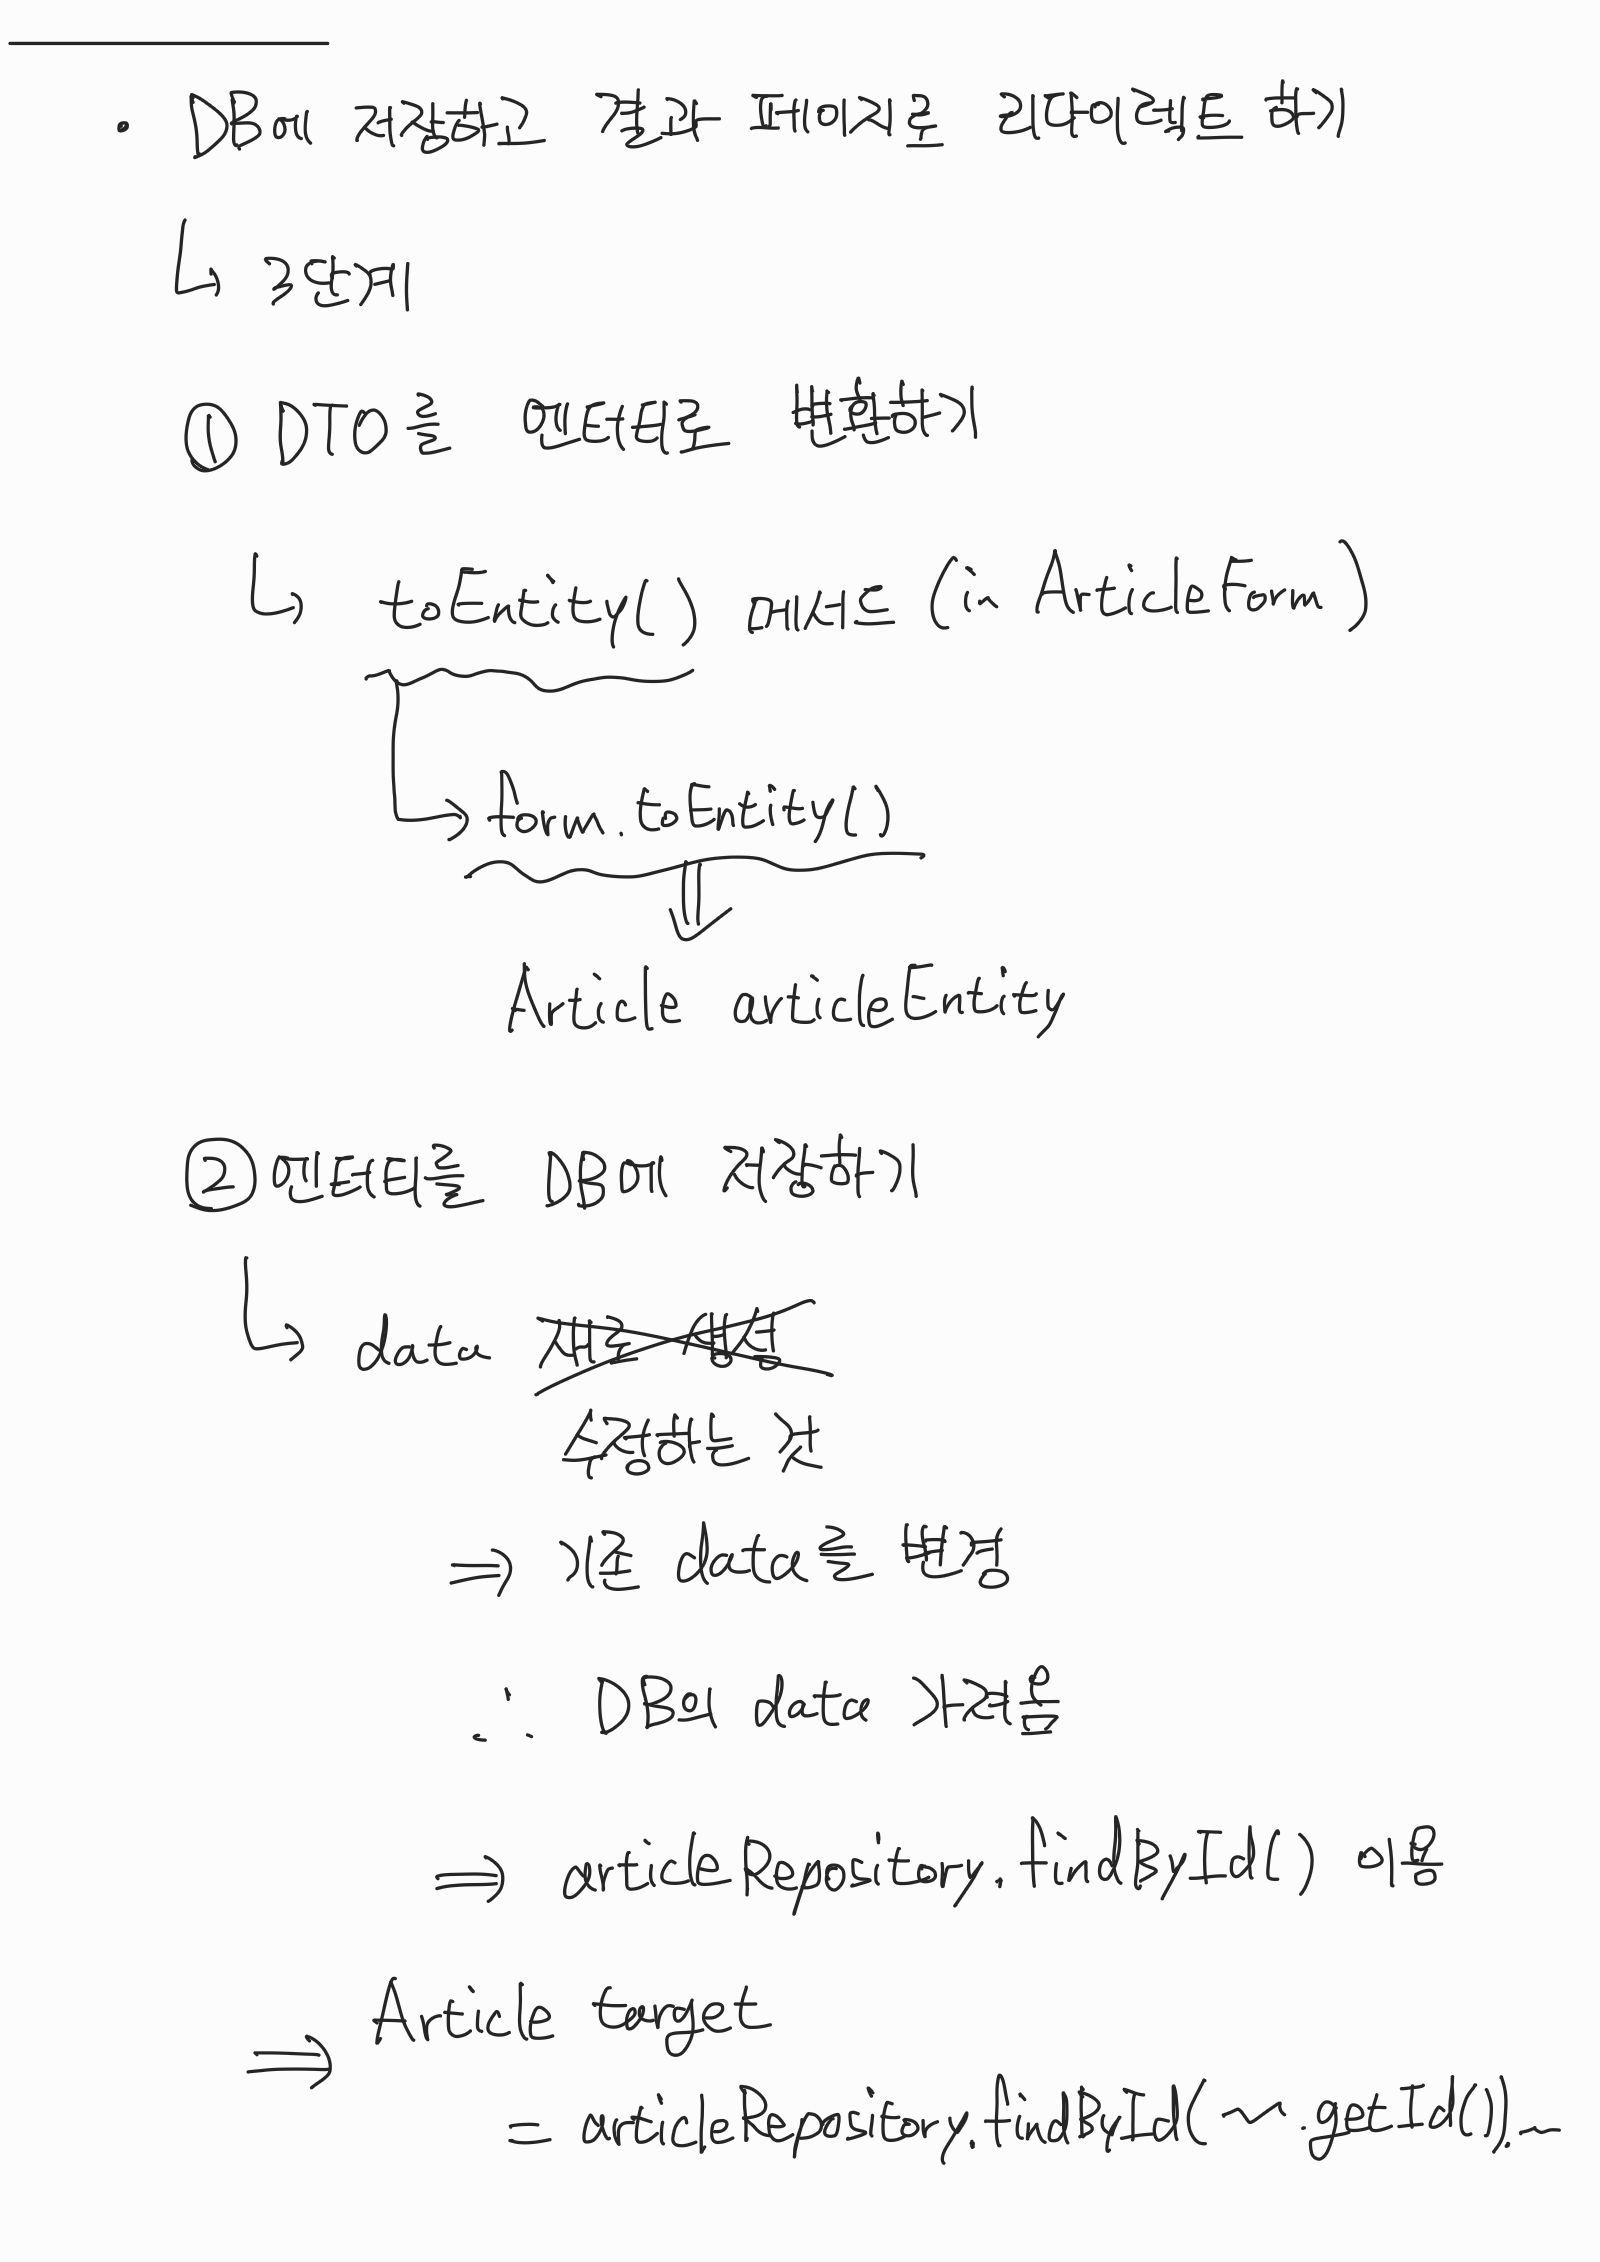 · DB에 저장하고 결과 페이지로 리다이렉트 하기
↳ 3단계
① DTO를 엔터티로 변환하기
↳ toEntity() 메서드 (in ArticleForm)
→ form.toEntity()
⇓
Article articleEntity
② 엔터티를 DB에 저장하기
↳ data 새로 생성
수정하는 것
⇒ 기존 data를 변경
∴ DB의 data 가져옴
⇒ articleRepository.findById() 이용
⇒ Article target
= articleRepository.findById(~.getId()).~